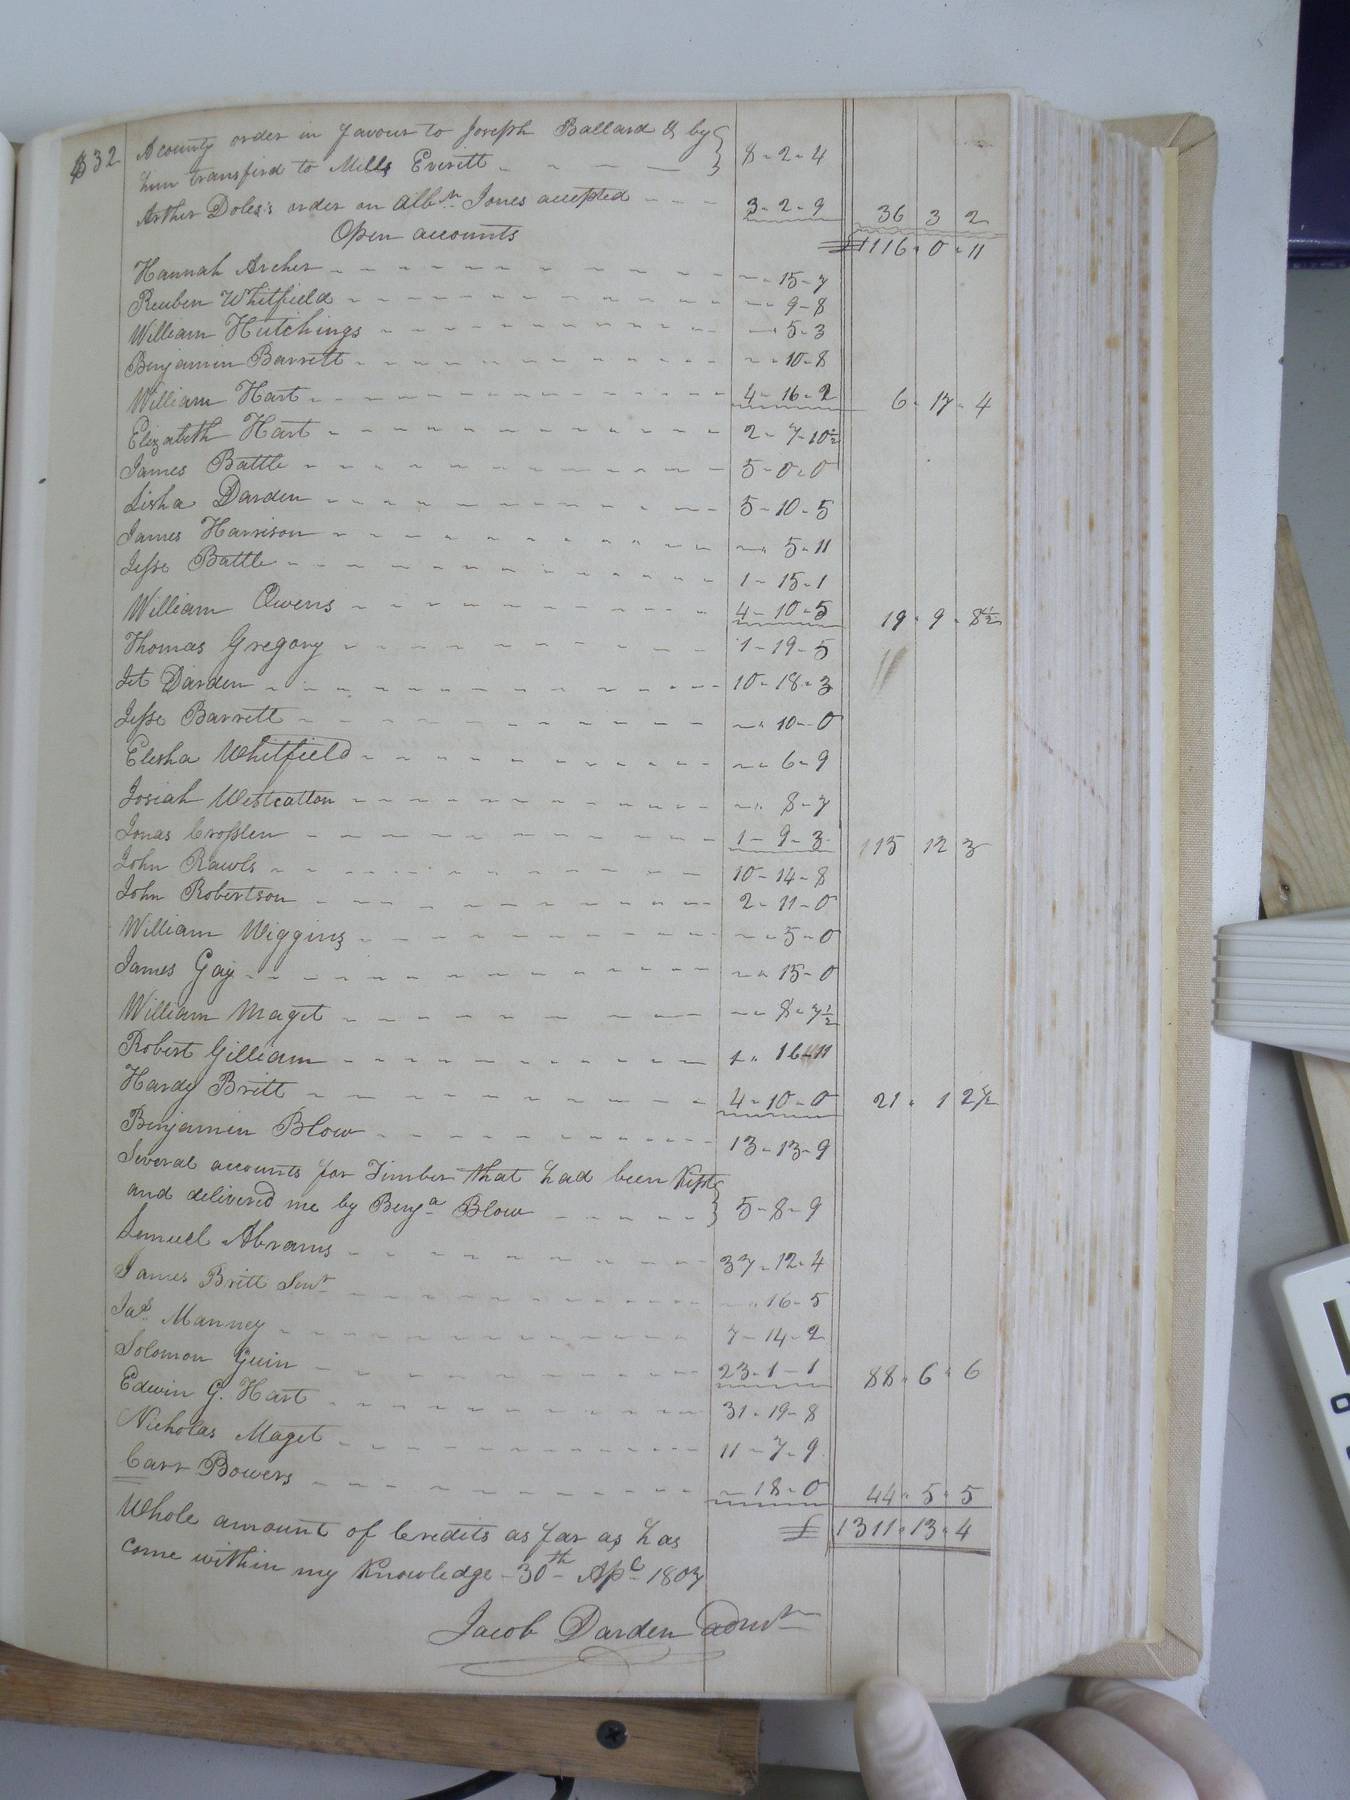 $32 A county order in favour to Joseph Ballard & by
him transfird to Mills Everitt 8-2-4
Arther Doles's order on Alb^n Jones accepted 3-2-9 36 3 2
Open accounts £1116-0-11
Hannah Archer 15-7
Reuben Whitfield 9-8
William Hutchings 5-3
Benjamin Barrett 10-8
William Hart 4-16-2 6-17-4
Elizabeth Hart 2-7-10½
James Battle 5-0-0
Lisha Darden 5-10-5
James Harrison 5-11
Jesse Battle 1-15-1
William Owens 4-10-5 19-9-8½
Thomas Gregory 1-19-5
Jet Darden 10-18-3
Jesse Barrett 10-0
Elisha Whitfield 6-9
Josiah Westcatton 8-7
Jonas Crosslen 1-9-3 15 12 3
John Rawls 10-14-8
John Robertson 2-11-0
William Wiggins 5-0
James Gay 15-0
William Maget 8-7½
Robert Gilliam 1-16-11
Hardy Britt 4-10-0 21-1 2½
Benjamin Blow 13-13-9
Several accounts for Timber that had been Kept
and delivered me by Benj^a Blow 5-8-9
Lemuel Abrams 37-12-4
James Britt Sen^r 16-5
Ja^s Manney 7-14-2
Solomon Guin 23-1-1 88-6-6
Edwin G. Hart 31-19-8
Nicholas Maget 11-7-9
Carr Bowers 18-0 44-5-5
Whole amount of Credits as far as has £1311-13-4
come within my Knowledge - 30^th Ap^l 1807
Jacob Darden adm^r